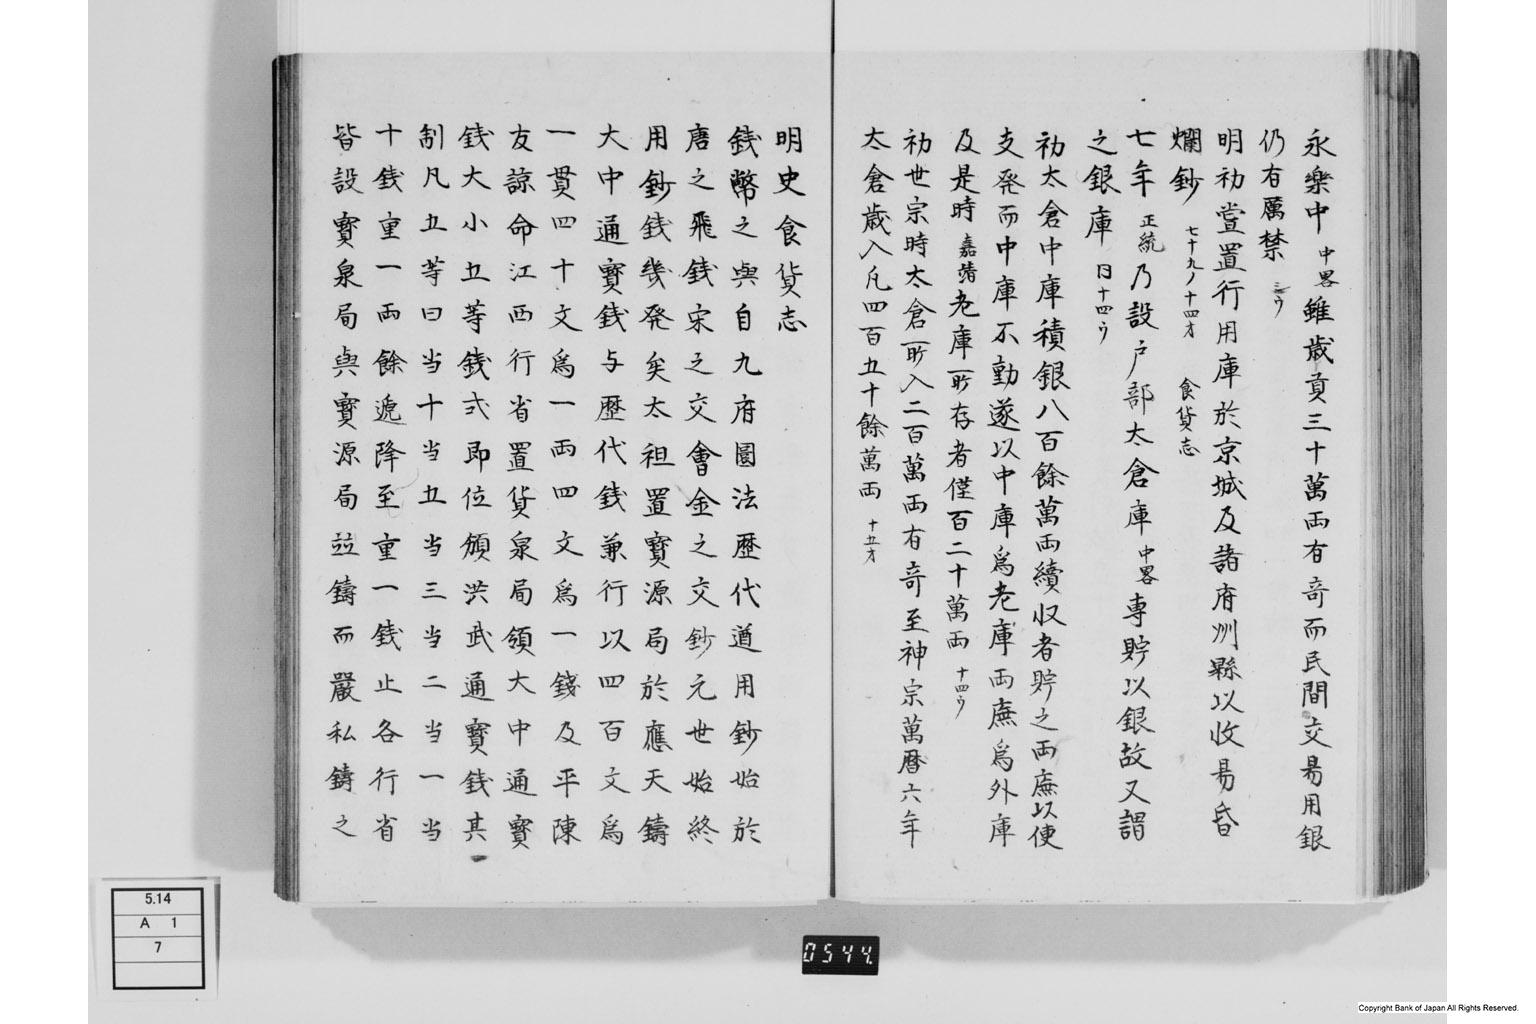 永樂中 中畧 雖歳貢三十萬両有竒而民間交易用銀
仍有厲禁 三ウ
明初嘗置行用庫於京城及諸府州縣以收易昏
爛鈔 七十九ノ十四才 食貨志
七年 正統 乃設戸部太倉庫 中畧 専貯以銀故又謂
之銀庫 同十四ウ
初太倉中庫積銀八百餘萬両續収者貯之両廡以便
支発而中庫不動遂以中庫為老庫両廡為外庫
及是時 嘉靖 老庫所存者僅百二十萬両 十四ウ
初世宗時太倉所入二百萬両有竒至神宗萬暦六年
太倉歳入凡四百五十餘萬両 十五才
明史食貨志
錢幣之興自九府圜法歴代遵用鈔始於
唐之飛錢宋之交會金之交鈔元世始終
用鈔錢幾発矣太祖置寳源局於應天鑄
大中通寳錢与歴代錢兼行以四百文為
一貫四十文為一両四文為一錢及平陳
友諒命江西行省置貨泉局領大中通寳
錢大小五等錢式即位頒洪武通寳錢其
制凡五等曰当十当五当三当二当一当
十錢重一両餘遞降至重一錢止各行省
皆設寳泉局與寳源局竝鑄而嚴私鑄之
5.14
A 1
7
0544.
Copyright Bank of Japan All Rights Reserved.